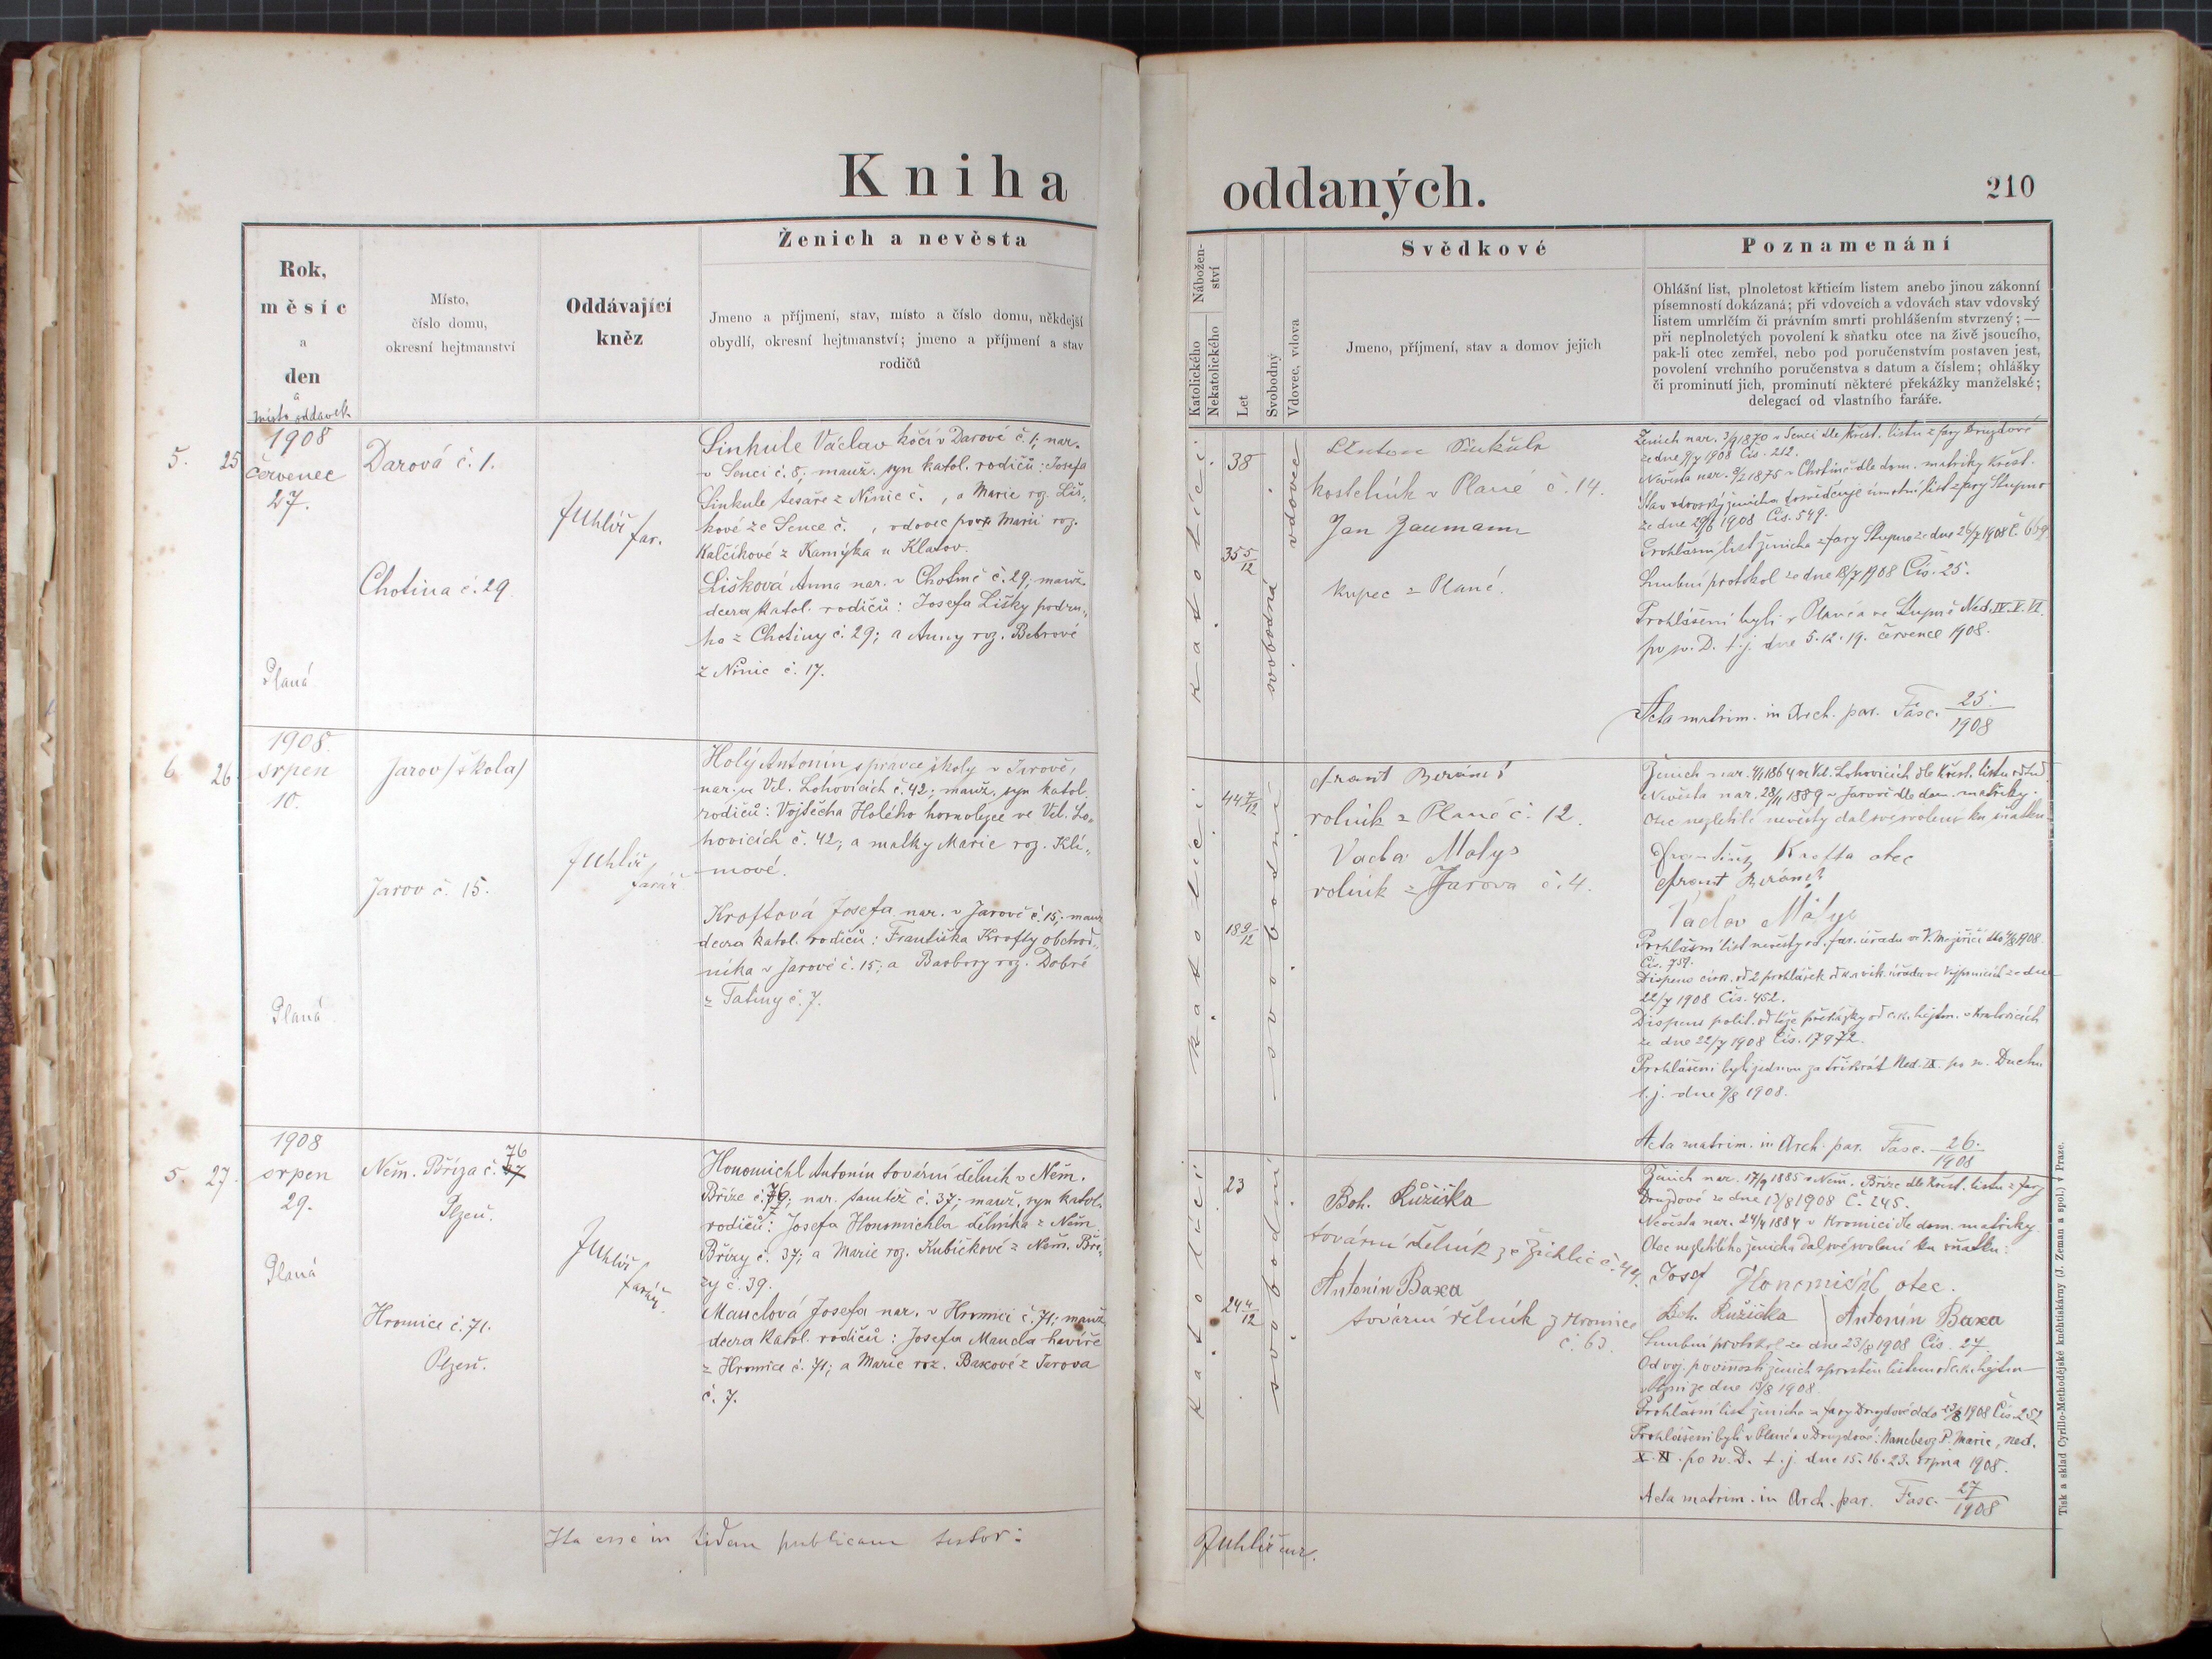 Kniha oddaných.
210
Rok,
měsíc
a
den
a
místo oddavek
Místo,
číslo domu,
okresní hejtmanství
Oddávající
kněz
Ženich a nevěsta
Jmeno a příjmení, stav, místo a číslo domu, někdejší
obydlí, okresní hejtmanství; jmeno a příjmení a stav
rodičů
Nábožen-
ství
Katolického
Nekatolického
Let
Svobodný
Vdovec, vdova
Svědkové
Jmeno, příjmení, stav a domov jejich
Poznamenání
Ohlášní list, plnoletost křticím listem anebo jinou zákonní
písemností dokázaná; při vdovcích a vdovách stav vdovský
listem umrlčím či právním smrti prohlášením stvrzený; —
při neplnoletých povolení k sňatku otce na živě jsoucího,
pak-li otec zemřel, nebo pod poručenstvím postaven jest,
povolení vrchního poručenstva s datum a číslem; ohlášky
či prominutí jich, prominutí některé překážky manželské;
delegací od vlastního faráře.
5. 25
1908
červenec
27.
Planá
Darová č. 1.
Chotina č. 29.
JUhlíř
far.
Sinkule Václav kočí v Darové č. 1; nar.
v Senci č. 8; manž. syn katol. rodičů: Josefa
Sinkule tesaře z Ninic č. , a Marie roz. Liš-
kové ze Sence č. , vdovec po Marii roz.
Kalčíkové z Kamýka u Klatov.
Lišková Anna nar. v Chotině č. 29; manž.
dcera katol. rodičů: Josefa Lišky podru-
ho z Chotiny č. 29; a Anny roz. Bebrové
z Ninic č. 17.
katolíci
38
35 5/12
svobodná
vdovec
Antonín Sinkule
kostelník v Plané č. 14.
Jan Zaumann
kupec z Plané.
Ženich nar. 3/9 1870 v Senci dle křest. listu z fary Druzdové
ze dne 9/7 1908 Čís. 212.
Nevěsta nar. 9/2 1875 v Chotině dle dom. matriky křest.
Stav vdovský ženicha dosvědčuje úmrtní list z fary Stupno
ze dne 29/6 1908 Čís. 549.
Prohlášní list ženicha z fary Stupno ze dne 26/7 1908 Č. 669.
Snubní protokol ze dne 18/7 1908 Čís. 25.
Prohlášeni byli v Plané a ve Stupně Ned. IV. V. VI.
po sv. D. t. j. dne 5. 12. 19. července 1908.
Acta matrim. in Arch. par. Fasc. 25/1908
6. 26.
1908.
srpen
10.
Planá
Jarov /škola/
Jarov č. 15.
JUhlíř
farář.
Holý Antonín správce školy v Jarově,
nar. ve Vel. Lohovicích č. 42; manž. syn katol.
rodičů: Vojtěcha Holého hornolyce ve Vel. Lo-
hovicích č. 42; a matky Marie roz. Klí-
mové.
Kroftová Josefa nar. v Jarově č. 15; manž.
dcera katol. rodičů: Františka Krofty obchod-
níka v Jarově č. 15; a Barbory roz. Dobré
z Tatiny č. 7.
katolíci
44 7/12
18 9/12
svobodní
Frant Beránek
rolník z Plané č. 12.
Václav Matys
rolník z Jarova č. 4.
Ženich nar. 4/1 1864 ve Vel. Lohovicích dle křest. listu
Nevěsta nar. 28/11 1889 v Jarově dle dom. matriky.
Otec nezletilé nevěsty dal své svolení ku sňatku
František Krofta otec
Frant Beránek
Václav Matys
Prohlášní list nevěsty od far. úřadu ve V. 1908.
Čís. 759.
Dispens círk. od 2 prohlášek od vik. úřadu ve ze dne
22/7 1908 Čís. 452.
Dispens polit. od téže překážky od c. k. hejtm. v Kralovicích
ze dne 22/7 1908 Čís. 17972.
Prohlášeni byli jednou za třikrát Ned. IX. po sv. Duchu
t. j. dne 9/8 1908.
Acta matrim. in Arch. par. Fasc. 26./1908
5. 27.
1908
srpen
29.
Planá
Něm. Bříza č. 76
Plzeň.
Hromice č. 71.
Plzeň.
JUhlíř
farář.
Honomichl Antonín tovární dělník v Něm.
Bříze č. 76; nar. tamtéž č. 37; manž. syn katol.
rodičů: Josefa Honomichla dělníka z Něm.
Břízy č. 37; a Marie roz. Kubíčkové z Něm. Bří-
zy č. 39.
Mauclová Josefa nar. v Hromici č. 71; manž.
dcera katol. rodičů: Josefa Maucla havíře
z Hromice č. 71; a Marie roz. Baxové z Jarova
č. 7.
katolíci
23
24 4/12
svobodní
Boh. Růžička
tovární dělník ze Žichlic č. 44.
Antonín Baxa
tovární dělník z Hromice
č. 63.
Ženich nar. 17/9 1885 v Něm. Bříze dle křest. listu z fary
Druzdové ze dne 13/8 1908 Č. 245.
Nevěsta nar. 24/4 1884 v Hromici dle dom. matriky.
Otec nezletilého ženicha dal své svolení ku sňatku:
Josef Honomichl, otec.
Boh. Růžička Antonín Baxa
Snubní protokol ze dne 23/8 1908 Čís. 27.
Od voj. povinnosti ženich zproštěn listem od c. k. hejtm.
v Plzni ze dne 13/8 1908.
Prohlášní list ženicha z fary Druzdové ddo 23/8 1908 Čís 252
Prohlášeni byli v Plané a v Druzdové: Nanebevz. P. Marie, ned.
X. XI. po sv. D. t. j. dne 15. 16. 23. srpna 1908.
Acta matrim. in Arch. par. Fasc. 27/1908
Ita esse in fidem publicam testor:
JUhlíř mr.
Tisk a sklad Cyrillo-Methodějské knihtiskárny (J. Zeman a spol.) v Praze.